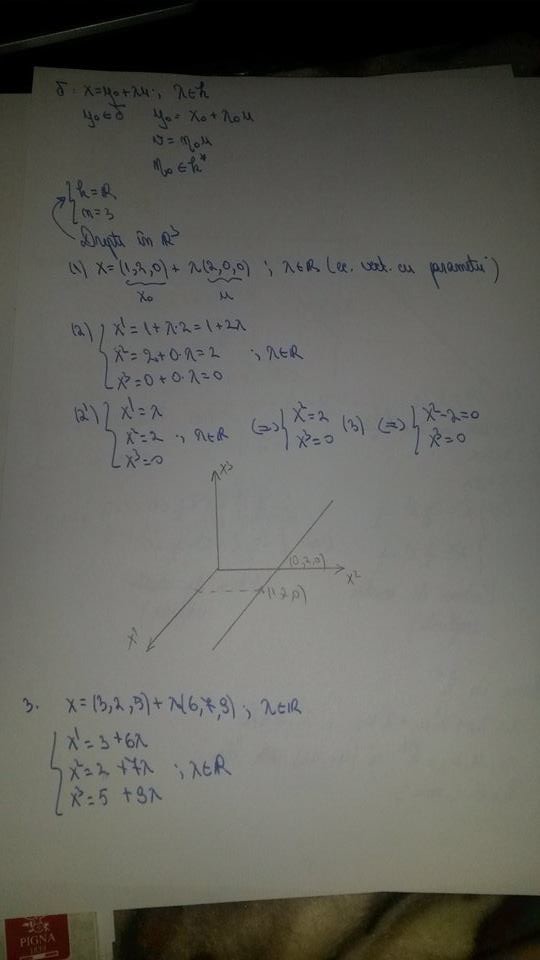 δ: x=y₀+λu; λ∈k
y₀∈δ y₀ = x₀ + λ₀u
v = η₀u
η₀ ∈ k*
{ k=ℝ
n=3
Drepte în ℝ³
(1) x = (1,2,0) + λ(2,0,0) ; λ∈ℝ (ec. vect. cu parametri)
x₀ u
(2) { x¹ = 1+λ·2 = 1+2λ
x² = 2+0·λ=2 ; λ∈ℝ
x³ = 0+0·λ=0
(2') { x¹=λ
x²=2 ; λ∈ℝ (⇔) { x²=2 (3) (⇔) { x²-2=0
x³=0 x³=0 x³=0
x³
(0,2,0)
x²
(1,2,0)
x¹
3. x = (3,2,5) + λ(6,7,9) ; λ∈ℝ
{ x¹ = 3+6λ
x² = 2 +7λ ; λ∈ℝ
x³ = 5 +9λ
PIGNA